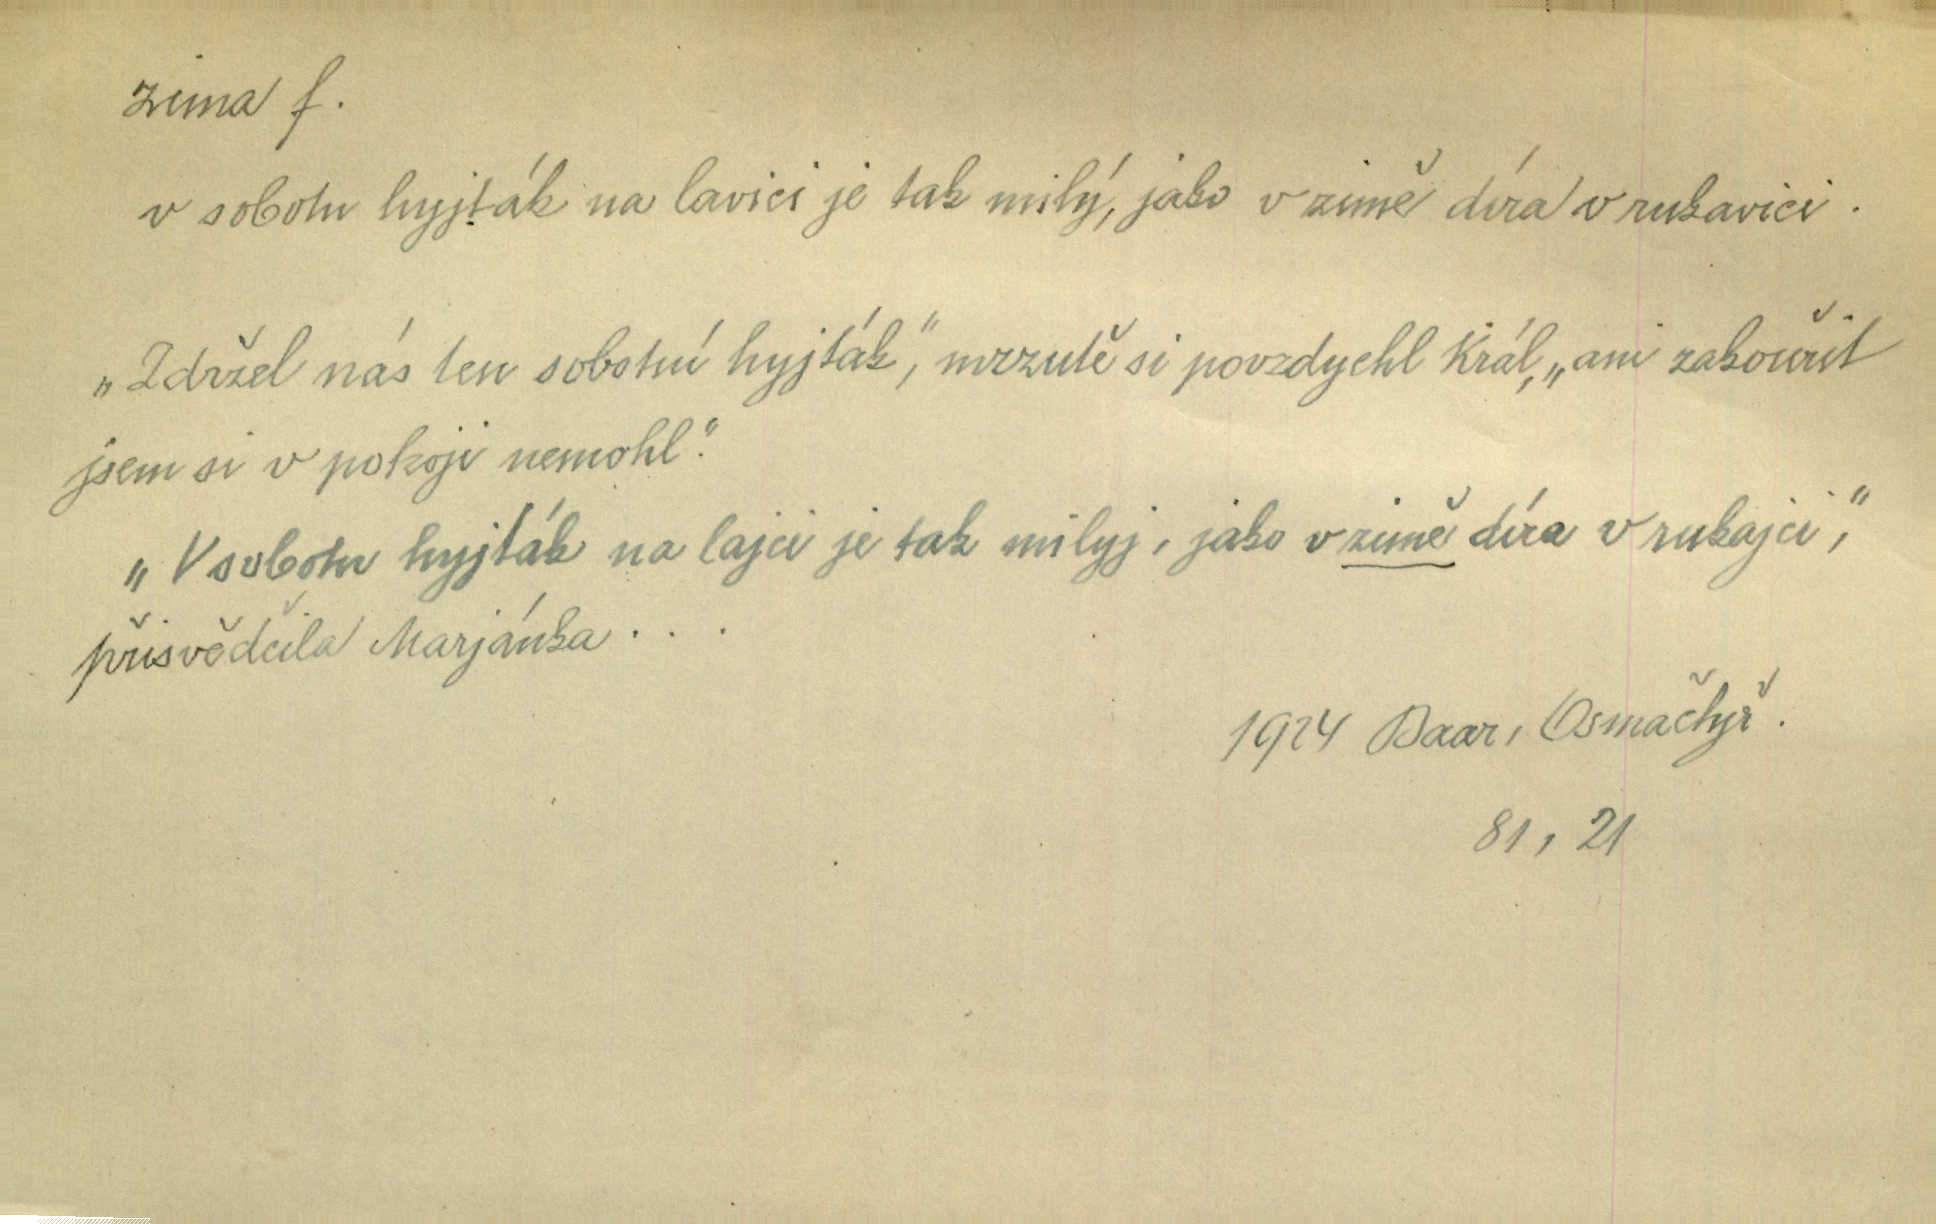 zima f.
v sobotu hyjták na lavici je tak milý, jako v zimě díra v rukavici.
„Zdržel nás ten sobotní hyjták,“ mrzutě si povzdychl Král, „ani zakouřit
jsem si v pokoji nemohl“.
„V sobotu hyjták na lajci je tak milyj, jako v zimě díra v rukajci,“
přisvědčila Marjánka . . .
1924 Baar, Osmačtyř.
81, 21